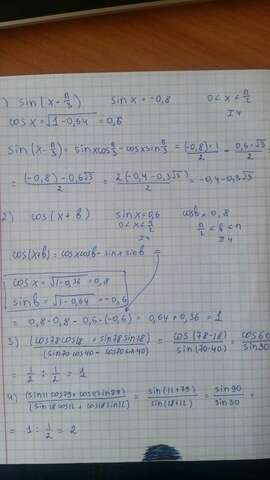 1) sin(x - π/3) sin x = -0,8 0 < x < π/2
cos x = √1-0,64 = 0,6 I ч
sin(x - π/3) = sin x cos π/3 - cos x sin π/3 = (-0,8)·1/2 - 0,6·√3/2 =
= (-0,8) - 0,6√3/2 = 2(-0,4-0,3√3)/2 = -0,4-0,3√3
2) cos(x + в) sin x = 0,6 cos в = 0,8
0 < x < π/2 π/2 < в < π
I ч II ч
cos(x+в) = cos x cos в - sin x sin в =
cos x = √1-0,36 = 0,8
sin в = √1-0,64 = -0,6
= 0,8·0,8 - 0,6·(-0,6) = 0,64 + 0,36 = 1
3) (cos78 cos18 + sin78 sin18)/(sin70 cos40 - cos70 sin40) = cos(78-18)/sin(70-40) = cos60/sin30
= 1/2 : 1/2 = 1
4) (sin11 cos79 + cos11 sin79)/(sin18 cos12 + cos18 sin12) = sin(11+79)/sin(18+12) = sin90/sin30 =
= 1 : 1/2 = 2